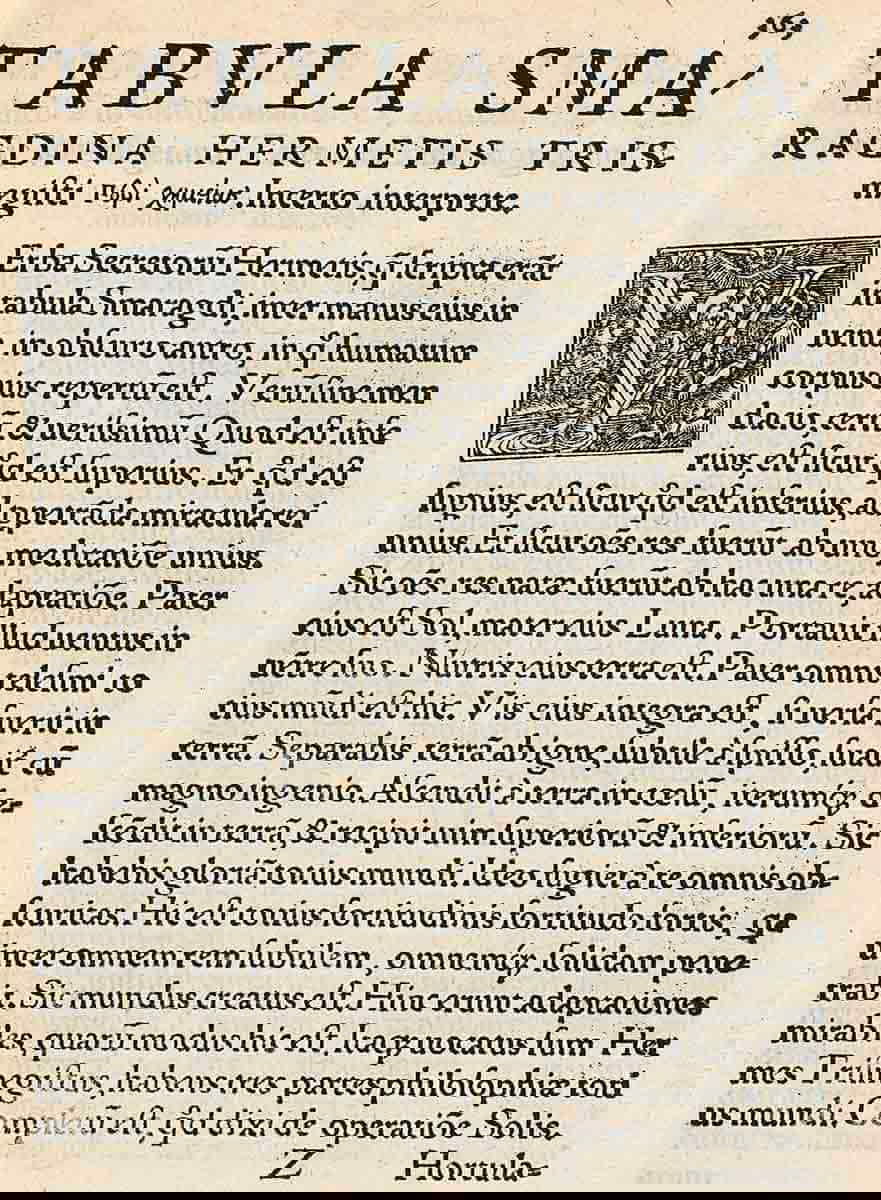 163
TABVLA SMA-
RAGDINA HERMETIS TRIS-
megisti περὶ χημείας. Incerto interprete.
VErba Secretorū Hermetis, q̄ scripta erāt
in tabula Smaragdi, inter manus eius in
uenta, in obscuro antro, in q̄ humatum
corpus eius repertū est. Verū sine men
dacio, certū, & uerissimū Quod est infe
rius, est sicut q̄d est superius. Et q̄d est
supius, est sicut q̄d est inferius, ad perpetrāda miracula rei
unius. Et sicut oēs res fuerūt ab uno, meditatiōe unius.
Sic oēs res natæ fuerūt ab hac una re, adaptatiōe. Pater
eius est Sol, mater eius Luna. Portauit illud uentus in
uētre suo. Nutrix eius terra est. Pater omnis telesmi to
tius mūdi est hic. Vis eius integra est, si uersa fuerit in
terrā. Separabis terrā ab igne, subtile à spisso, suauit̄ cū
magno ingenio. Ascendit à terra in cœlū, iterumq́; de
scēdit in terrā, & recipit uim superiorū & inferiorū. Sic
habebis gloriā totius mundi. Ideo fugiet à te omnis ob-
scuritas. Hic est totius fortitudinis fortitudo fortis, qa
uincet omnem rem subtilem, omnemq́; solidam pene-
trabit. Sic mundus creatus est. Hinc erunt adaptationes
mirabiles, quarū modus hic est. Itaq; uocatus sum Her
mes Trismegistus, habens tres partes philosophiæ toti
us mundi. Completū est, q̄d dixi de operatiōe Solis.
Z Hortula-